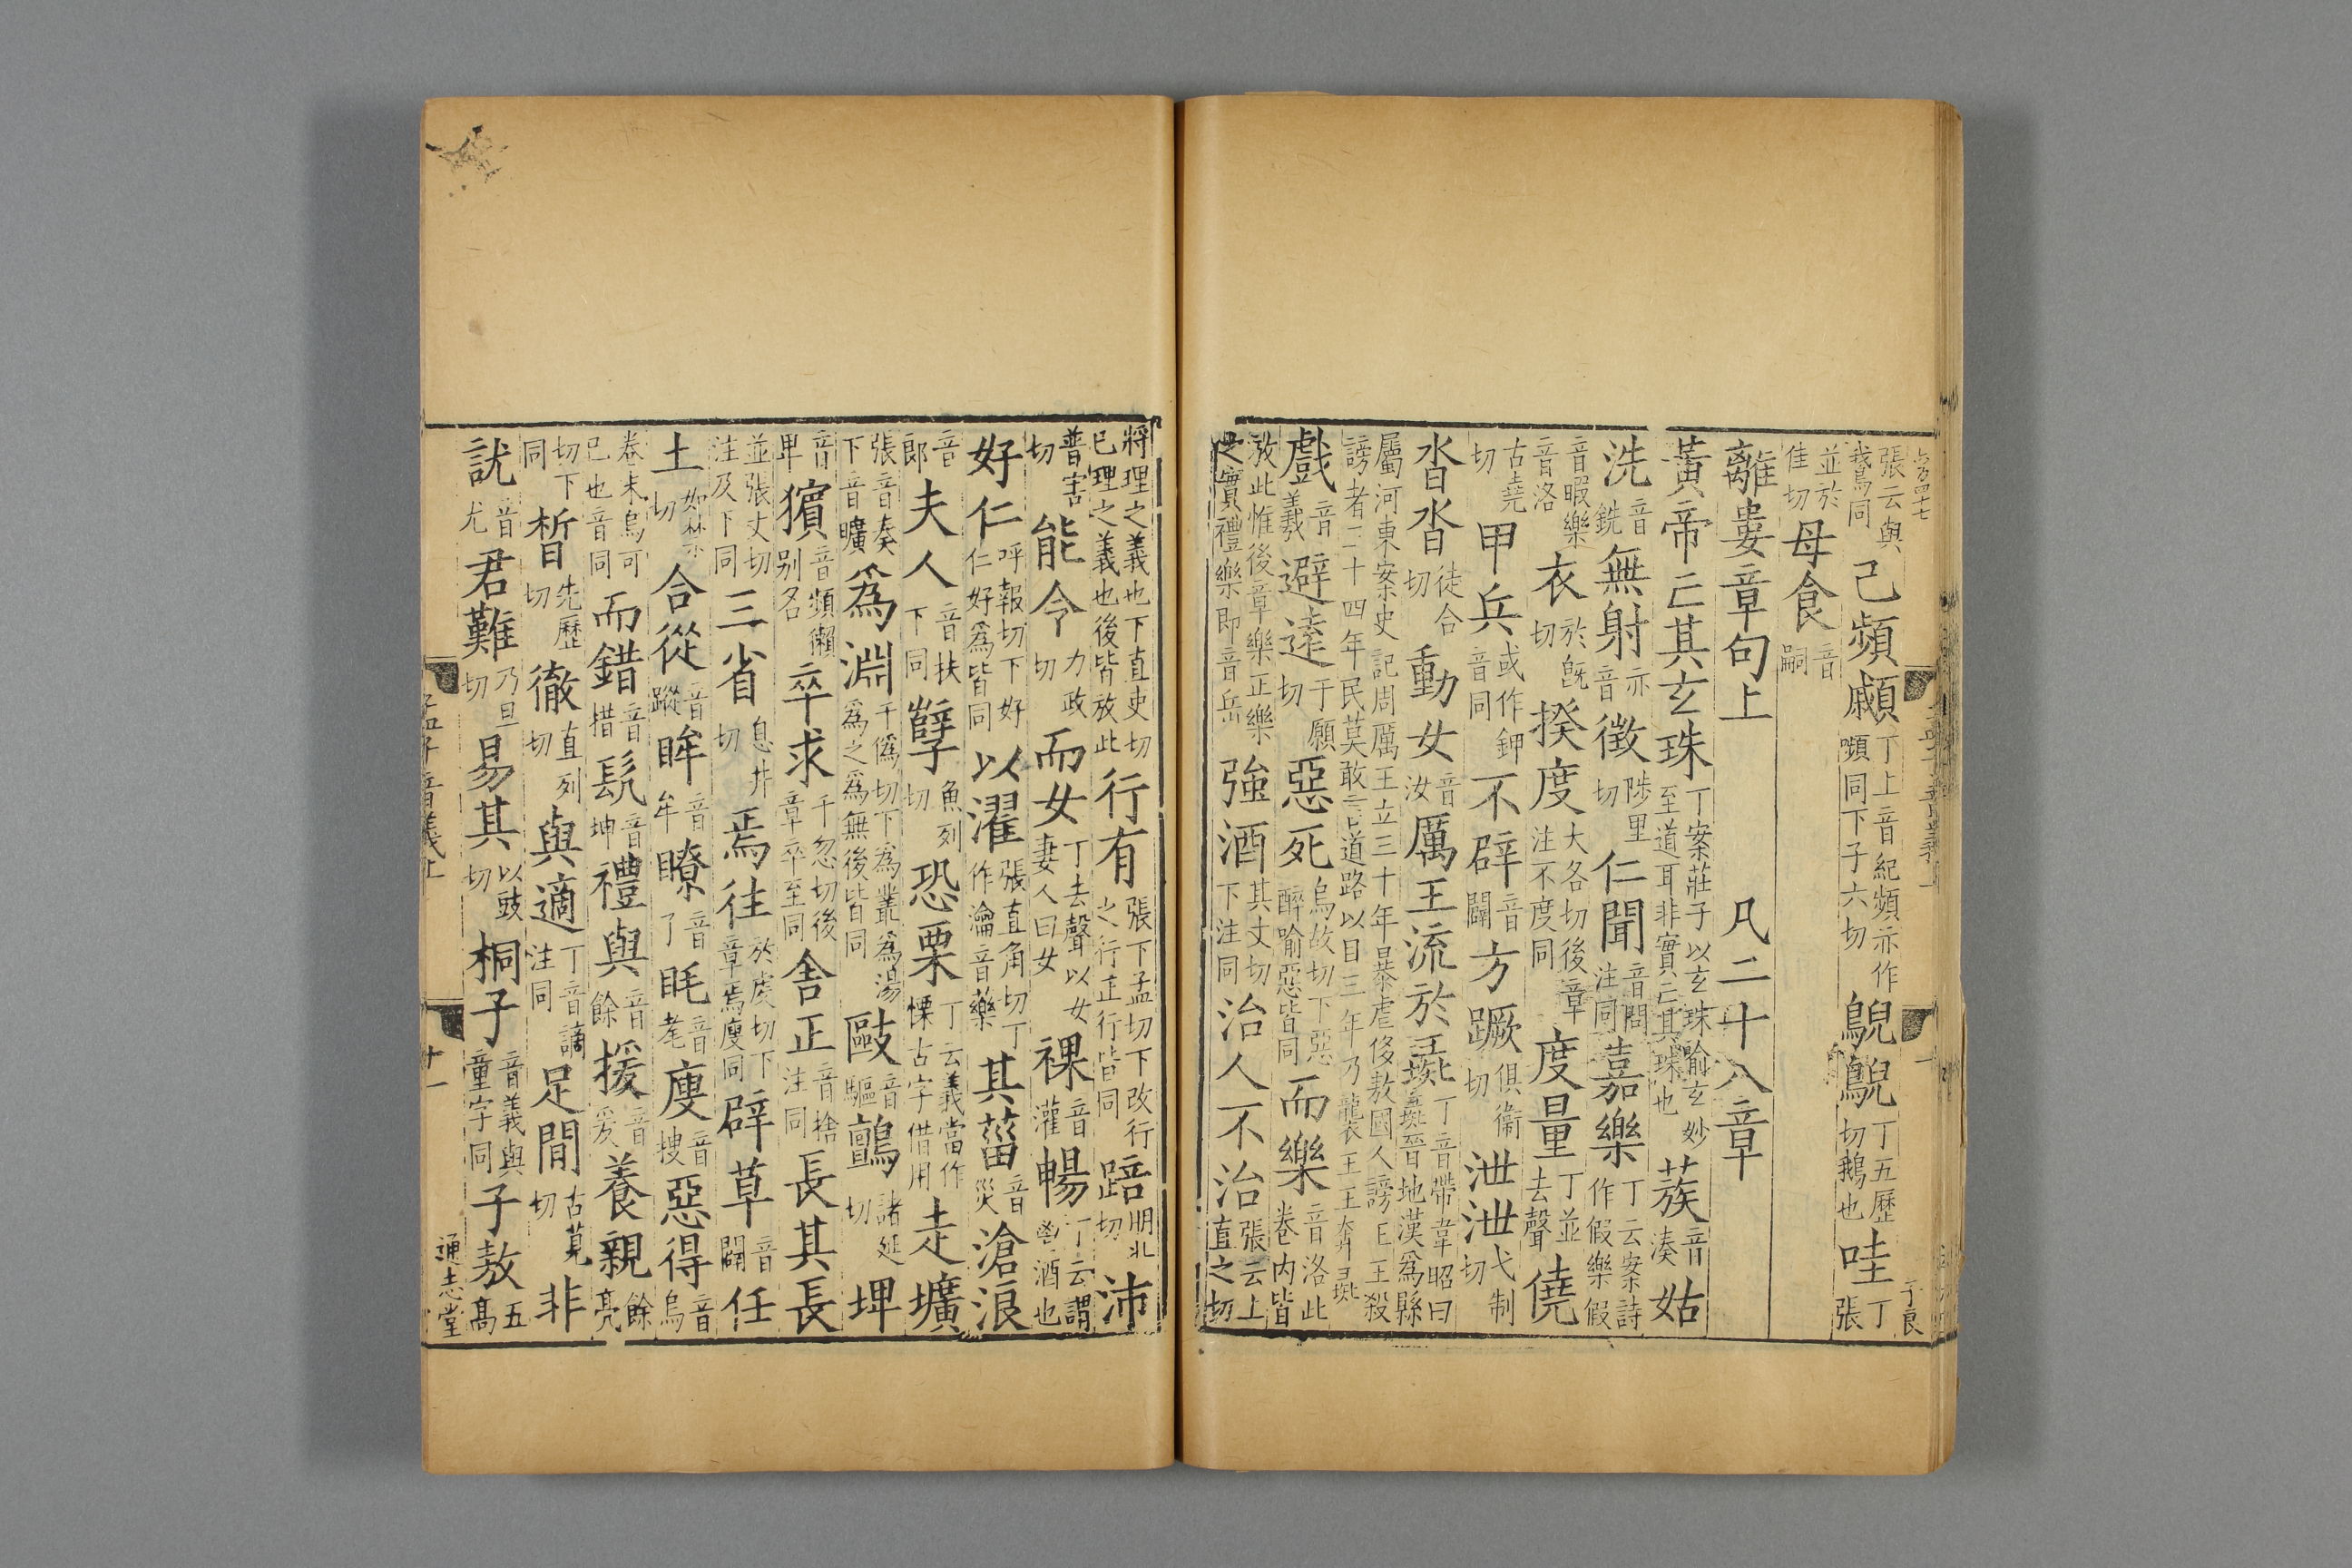 張云與我鳥同己頻顣丁上音紀頻亦作嚬同下子六切鶃鶃丁五歷切鵝也哇丁張
並於佳切母食音嗣
離婁章句上 凡二十八章
黃帝亡其玄珠丁案莊子以玄珠喻玄妙至道耳非實亡其珠也蔟音湊姑
洗音銑無射音亦徵陟里切仁聞音問注同嘉樂丁云案詩作假樂假
音暇樂音洛衣於旣切揆度大各切後章注不度同度量丁並去聲僥
古堯切甲兵或作鉀音同不辟音闢方蹶俱衞切泄泄弋制切
沓沓徒合切動女音汝厲王流於彘丁音帶韋昭曰彘晉地漢爲縣
屬河東案史記周厲王立三十年暴虐侈敖國人謗王王殺謗者三十四年民莫敢言道路以目三年乃襲王王奔彘
戲音羲避遠于願切惡死烏故切下惡醉喻惡皆同而樂音洛此卷內皆
放此惟後章樂正樂之實禮樂即音岳強酒其丈切下注同治人不治張云上直之切
將理之義也下直吏切已理之義也後皆放此行有張下孟切下改行之行正行皆同踣朋北切沛
普害切能令力政切而女丁去聲以女妻人曰女祼音灌暢丁云謂鬯酒也
好仁呼報切下好仁好爲皆同以濯張直角切丁作瀹音藥其菑音災滄浪
音郎夫人音扶下同孼魚列切恐栗丁云義當作慄古字借用走壙
張音奏下音曠爲淵于僞切下爲叢爲湯爲之爲無後皆同敺音驅鸇諸延切埤
音卑獱音頻獺別名卒求千忽切後章卒至同舍正音捨注同長其長
並張丈切注及下同三省息井切焉往於虔切下章焉廋同辟草音闢任
土如禁切合從音蹤眸音牟瞭音了眊音耄廋音搜惡得音烏
卷末烏可已也音同而錯音措髡音坤禮與音餘援音爰養親餘亮
切下同晳先歷切徹直列切與適丁音讁注同足閒古莧切非
訧音尤君難乃旦切易其以豉切桐子音義與童字同子敖五高
孟子音義上
十一
通志堂